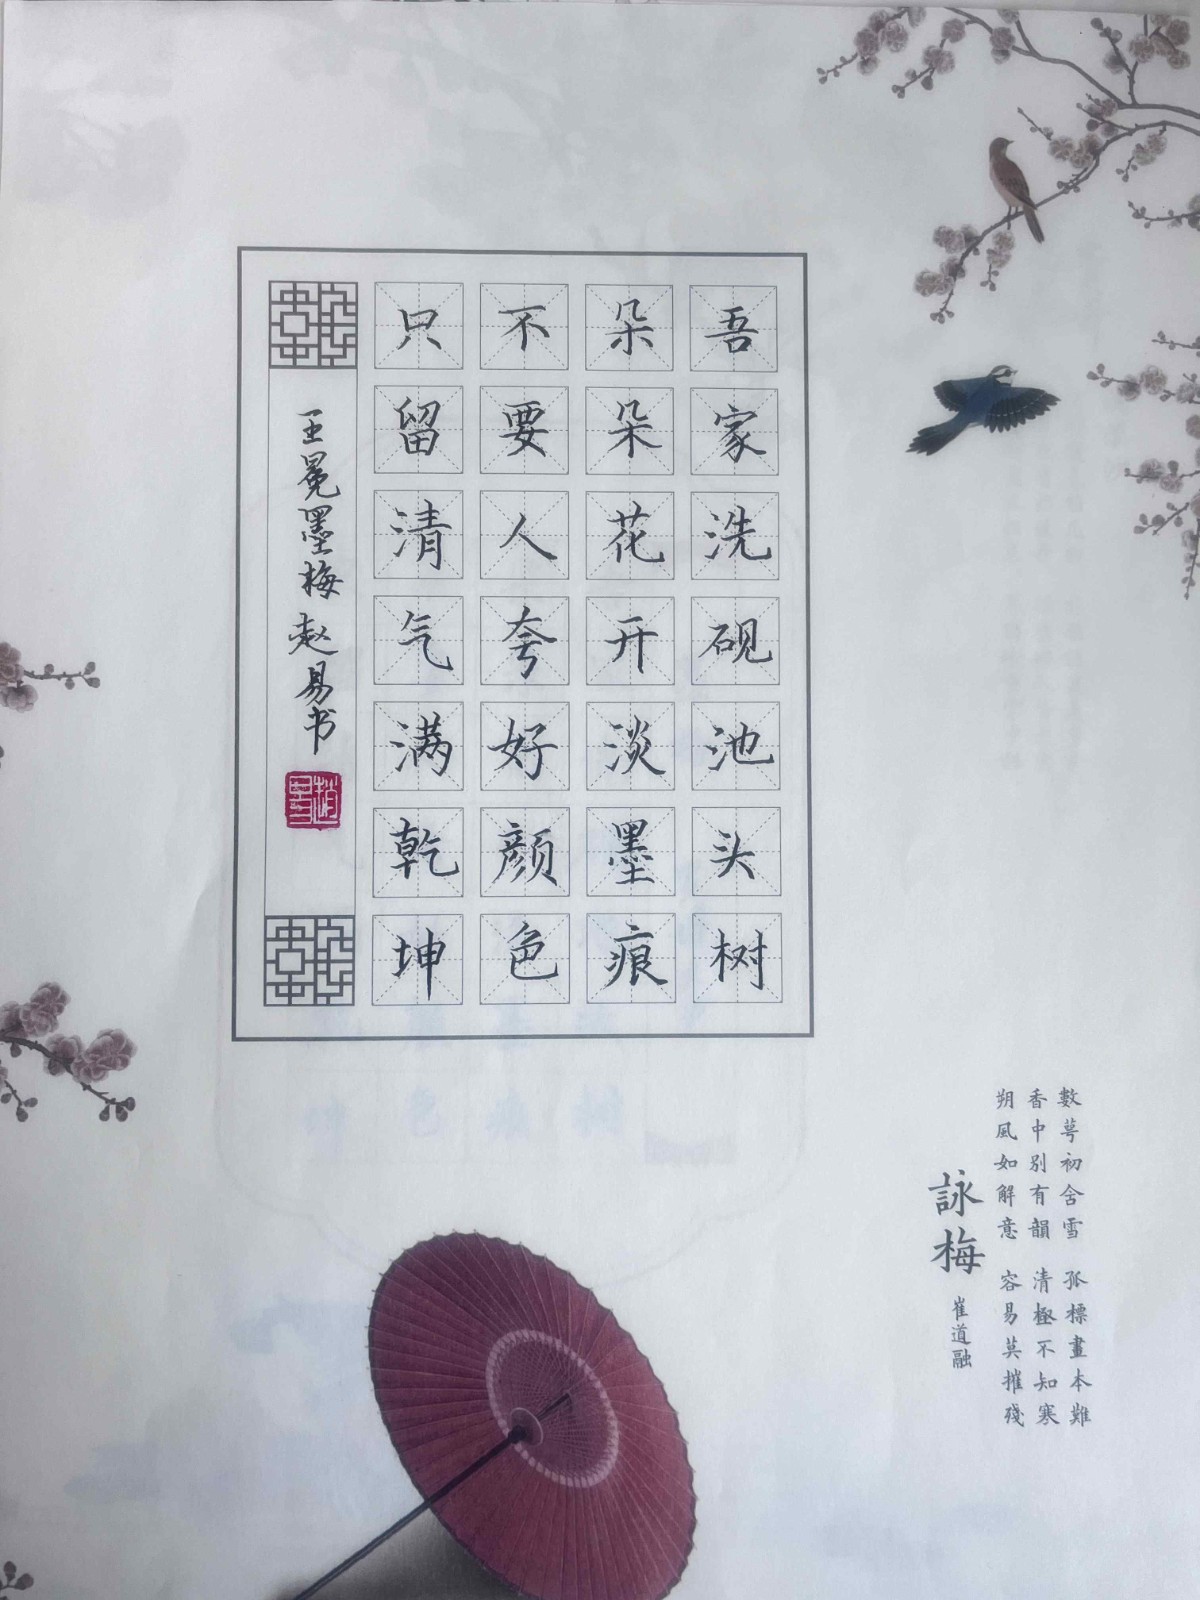 吾家洗砚池头树
朵朵花开淡墨痕
不要人夸好颜色
只留清气满乾坤
王冕墨梅 赵易书
數萼初含雪 孤標畫本難
香中別有韻 清極不知寒
朔風如解意 容易莫摧殘
詠梅 崔道融